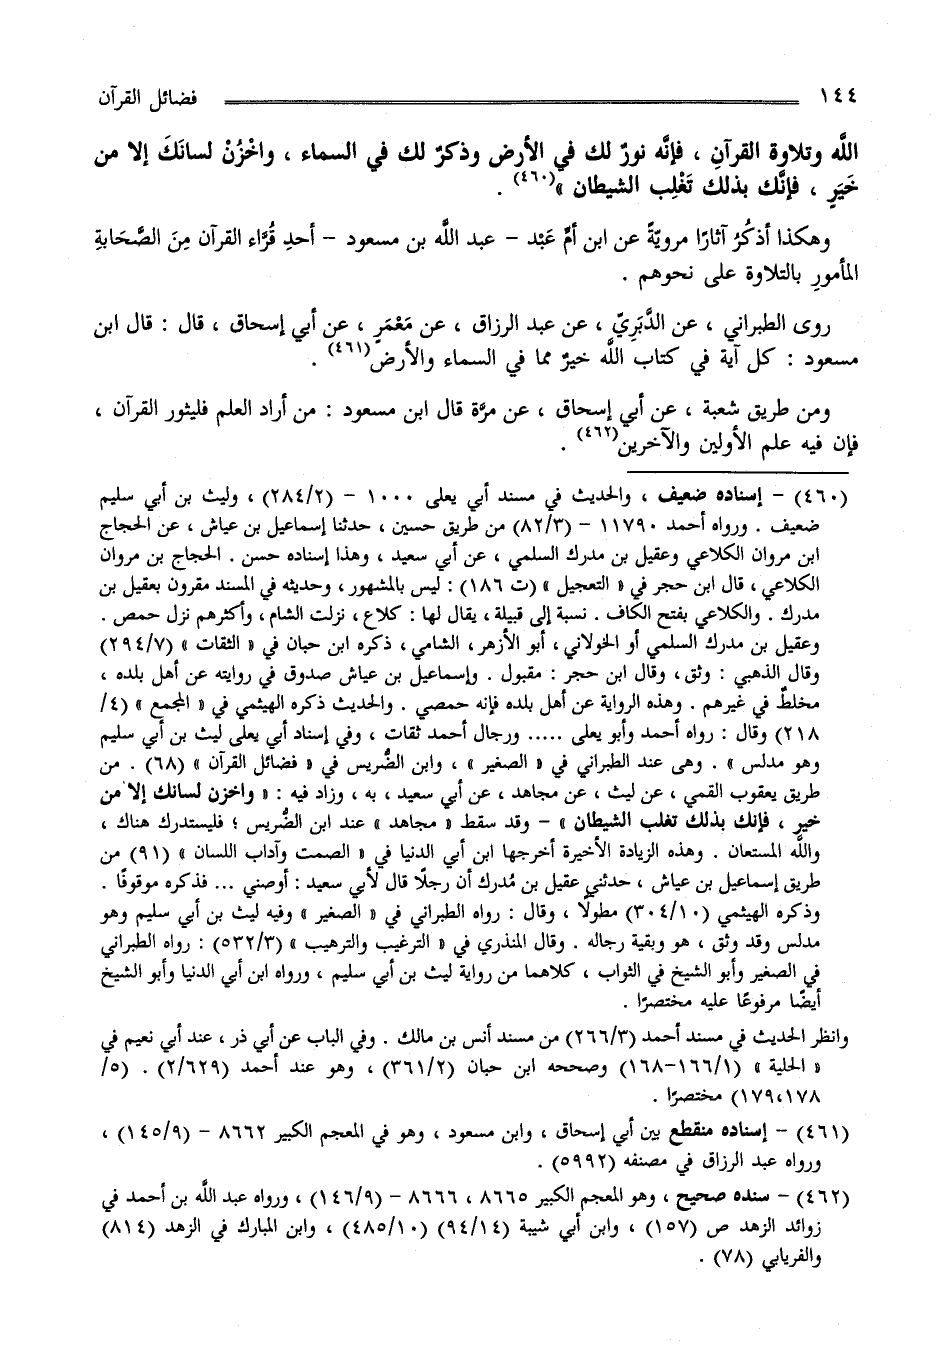 ١٤٤ فضائل القرآن
اللَّه وتلاوة القرآنِ ، فإنَّه نورٌ لك في الأرض وذكرٌ لك في السماء ، واخْزُنْ لسانَكَ إلا من
خَيَرٍ ، فإنَّك بذلك تَغْلِب الشيطان »(٤٦٠) .
وهكذا أذكُرُ آثارًا مرويّةً عن ابن أمِّ عَبْد – عبد اللَّه بن مسعود – أحدِ قُرَّاء القرآن مِنَ الصَّحَابةِ
المأمورِ بالتلاوة على نحوهم .
روى الطبراني ، عن الدَّبَرِيّ ، عن عبد الرزاق ، عن مَعْمَرٍ ، عن أبي إسحاق ، قال : قال ابن
مسعود : كل آية في كتاب اللَّه خيرٌ مما في السماء والأرض(٤٦١) .
ومن طريق شعبة ، عن أبي إسحاق ، عن مرَّة قال ابن مسعود : من أراد العلم فليثور القرآن ،
فإن فيه علم الأولين والآخرين(٤٦٢) .
(٤٦٠) – إسناده ضعيف ، والحديث في مسند أبي يعلى ١٠٠٠ – (٢٨٤/٢) ، وليث بن أبي سليم
ضعيف . ورواه أحمد ١١٧٩٠ – (٨٢/٣) من طريق حسين ، حدثنا إسماعيل بن عياش ، عن الحجاج
ابن مروان الكلاعي وعقيل بن مدرك السلمي ، عن أبي سعيد ، وهذا إسناده حسن . الحجاج بن مروان
الكلاعي ، قال ابن حجر في « التعجيل » (ت ١٨٦) : ليس بالمشهور ، وحديثه في المسند مقرون بعقيل بن
مدرك . والكلاعي بفتح الكاف . نسبة إلى قبيلة ، يقال لها : كلاع ، نزلت الشام ، وأكثرهم نزل حمص .
وعقيل بن مدرك السلمي أو الخولاني ، أبو الأزهر ، الشامي ، ذكره ابن حبان في « الثقات » (٢٩٤/٧)
وقال الذهبي : وثق ، وقال ابن حجر : مقبول . وإسماعيل بن عياش صدوق في روايته عن أهل بلده ،
مخلطٌ في غيرهم . وهذه الرواية عن أهل بلده فإنه حمصي . والحديث ذكره الهيثمي في « المجمع » (٤/
٢١٨) وقال : رواه أحمد وأبو يعلى ..... ورجال أحمد ثقات ، وفي إسناد أبي يعلى ليث بن أبي سليم
وهو مدلس » . وهى عند الطبراني في « الصغير » ، وابن الضُّريس في « فضائل القرآن » (٦٨) . من
طريق يعقوب القمي ، عن ليث ، عن مجاهد ، عن أبي سعيد ، به ، وزاد فيه : « واخزن لسانك إلا من
خير ، فإنك بذلك تغلب الشيطان » – وقد سقط « مجاهد » عند ابن الضُّريس ؛ فليستدرك هناك ،
واللَّه المستعان . وهذه الزيادة الأخيرة أخرجها ابن أبي الدنيا في « الصمت وآداب اللسان » (٩١) من
طريق إسماعيل بن عياش ، حدثني عقيل بن مُدرك أن رجلًا قال لأبي سعيد : أوصني ... فذكره موقوفًا .
وذكره الهيثمي (٣٠٤/١٠) مطولًا ، وقال : رواه الطبراني في « الصغير » وفيه ليث بن أبي سليم وهو
مدلس وقد وثق ، هو وبقية رجاله . وقال المنذري في « الترغيب والترهيب » (٥٣٢/٣) : رواه الطبراني
في الصغير وأبو الشيخ في الثواب ، كلاهما من رواية ليث بن أبي سليم ، ورواه ابن أبي الدنيا وأبو الشيخ
أيضًا مرفوعًا عليه مختصرًا .
وانظر الحديث في مسند أحمد (٢٦٦/٣) من مسند أنس بن مالك . وفي الباب عن أبي ذر ، عند أبي نعيم في
« الحلية » (١٦٦/١–١٦٨) وصححه ابن حبان (٣٦١/٢) ، وهو عند أحمد (٢/٦٢٩) . (٥/
١٧٩،١٧٨) مختصرًا .
(٤٦١) – إسناده منقطع بين أبي إسحاق ، وابن مسعود ، وهو في المعجم الكبير ٨٦٦٢ – (١٤٥/٩) ،
ورواه عبد الرزاق في مصنفه (٥٩٩٢) .
(٤٦٢) – سنده صحيح ، وهو المعجم الكبير ٨٦٦٥ ، ٨٦٦٦ – (١٤٦/٩) ، ورواه عبد اللَّه بن أحمد في
زوائد الزهد ص (١٥٧) ، وابن أبي شيبة (٩٤/١٤) (٤٨٥/١٠) ، وابن المبارك في الزهد (٨١٤)
والفريابي (٧٨) .